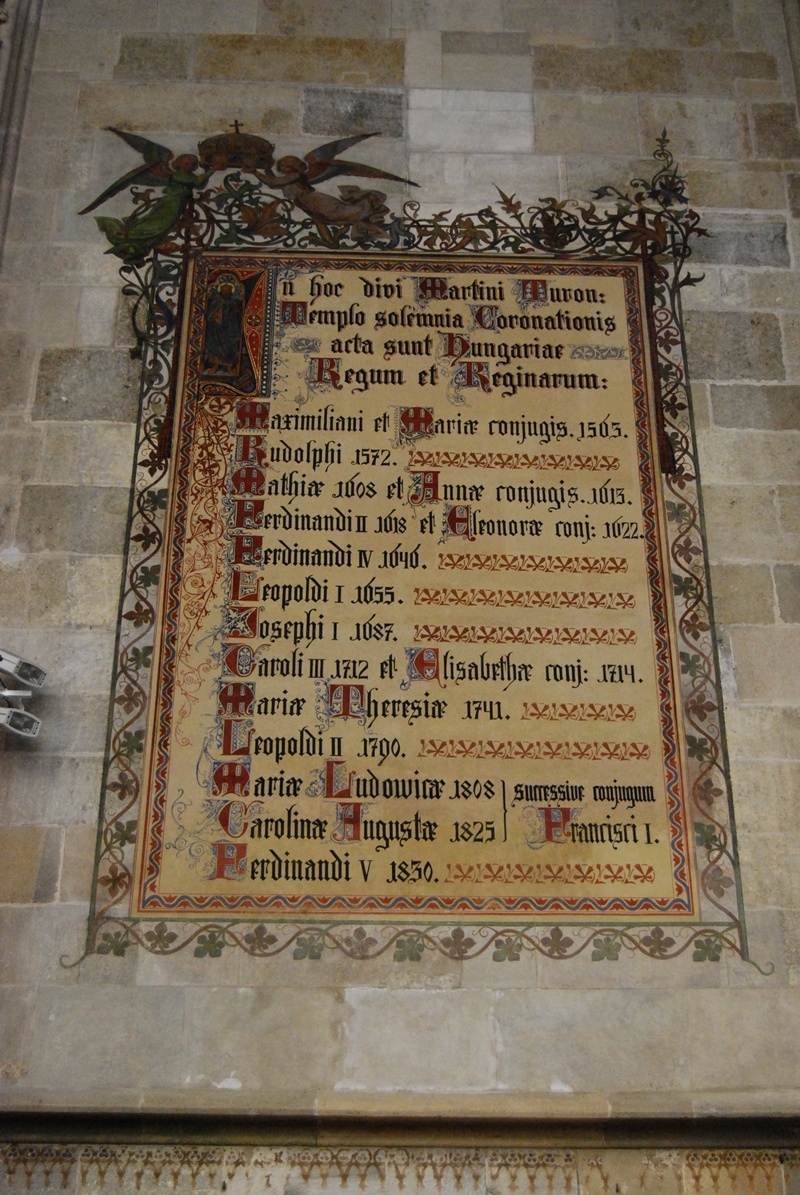 In hoc divi Martini Turon:
Templo solemnia Coronationis
acta sunt Hungariae
Regum et Reginarum:
Maximiliani et Mariæ conjugis. 1563.
Rudolphi 1572.
Mathiæ 1608 et Annæ conjugis. 1613.
Ferdinandi II 1618 et Eleonoræ conj: 1622.
Ferdinandi IV 1646.
Leopoldi I 1655.
Josephi I 1687.
Caroli III 1712 et Elisabethæ conj: 1714.
Mariæ Theresiæ 1741.
Leopoldi II 1790.
Mariæ Ludowicæ 1808 } successive conjugum
Carolinæ Augustæ 1825 } Francisci I.
Ferdinandi V 1830.